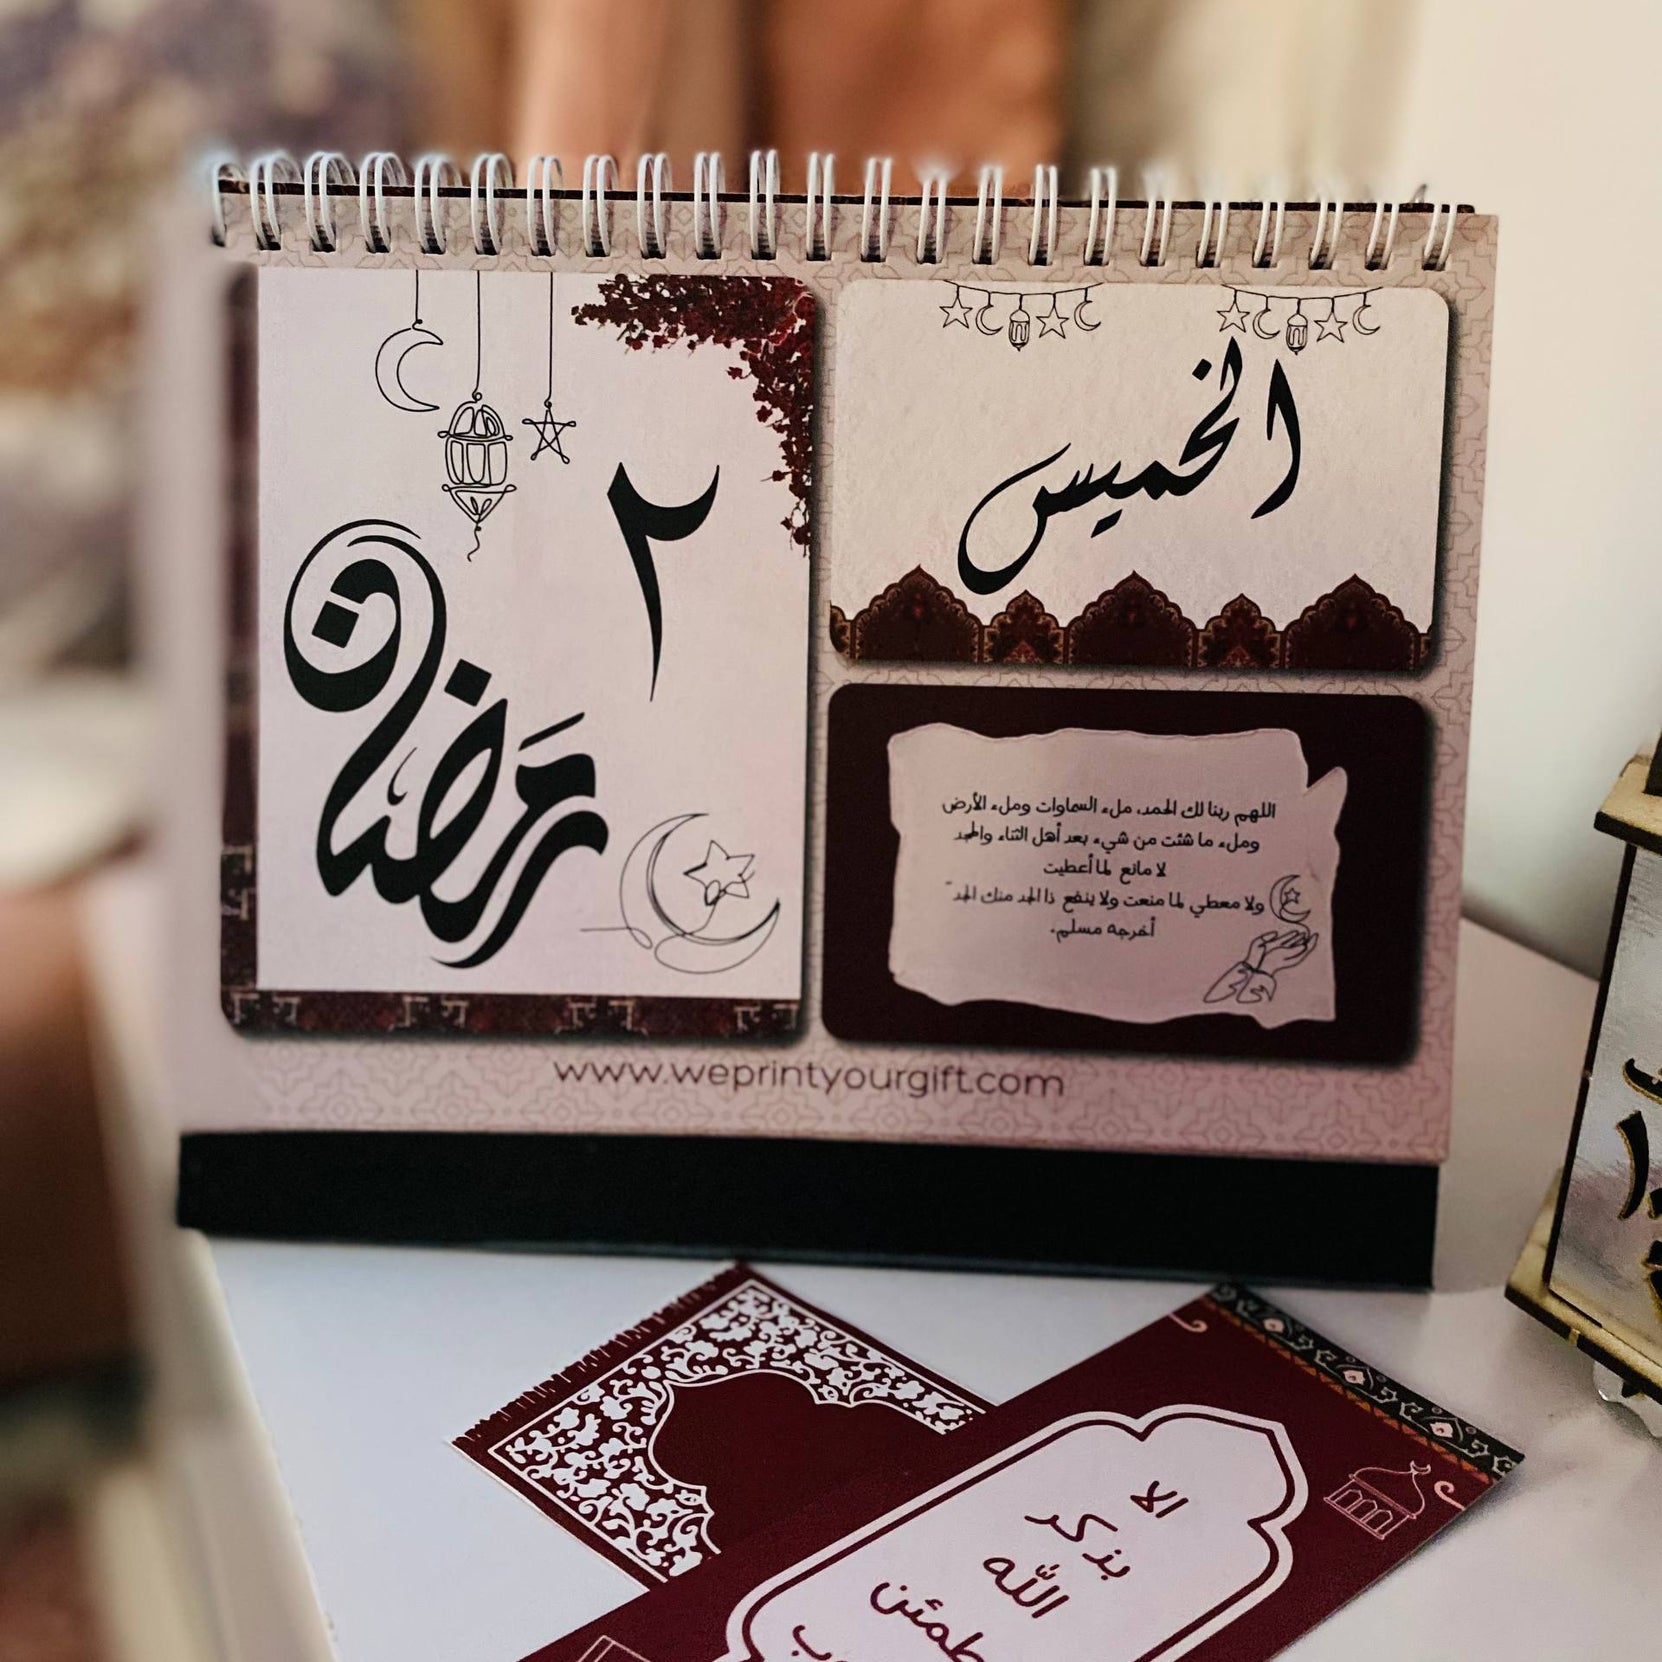 الخميس
٢
رمضان
اللهم ربنا لك الحمد، ملء السماوات وملء الأرض
وملء ما شئت من شيء بعد أهل الثناء والمجد
لا مانع لما أعطيت
ولا معطي لما منعت ولا ينفع ذا الجد منك الجد
أخرجه مسلم.
www.weprintyourgift.com
الا
بذكر
الله